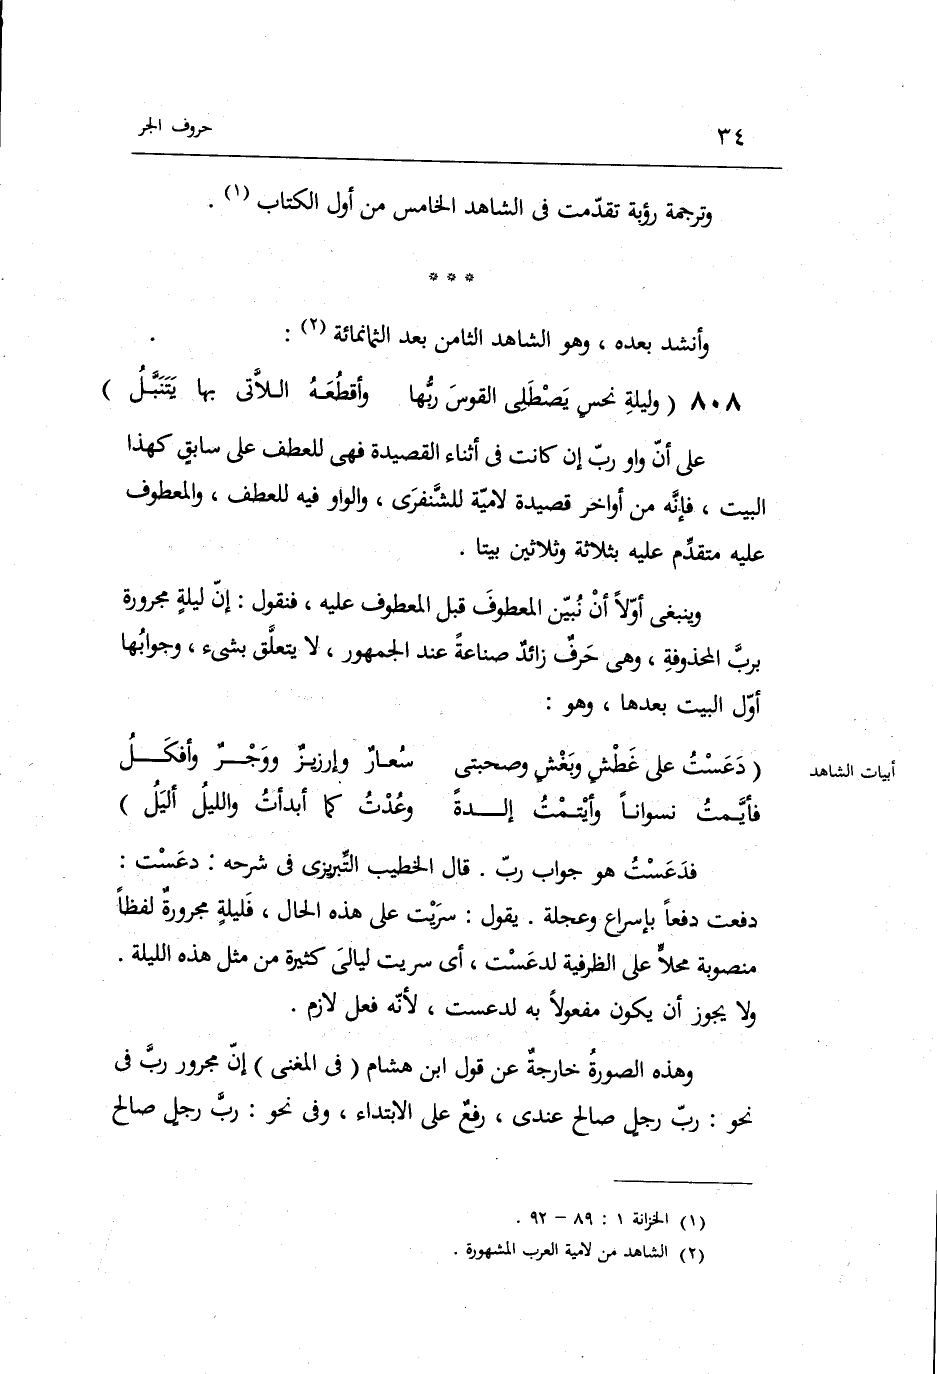 ٣٤
حروف الجر
وترجمة رؤبة تقدّمت فى الشاهد الخامس من أول الكتاب (١) .
* * *
وأنشد بعده ، وهو الشاهد الثامن بعد الثمانمائة (٢) :
٨٠٨ ( وليلةِ نحسٍ يَصْطَلِى القوسَ ربُّها وأقطُعَهُ اللاَّتى بها يَتَنَبَّلُ )
على أنّ واو ربّ إن كانت فى أثناء القصيدة فهى للعطف على سابقٍ كهذا
البيت ، فإنَّه من أواخر قصيدة لاميّة للشَّنفرَى ، والواو فيه للعطف ، والمعطوف
عليه متقدِّم عليه بثلاثة وثلاثين بيتا .
وينبغى أوّلاً أنْ نُبيّن المعطوفَ قبل المعطوف عليه ، فنقول : إنّ ليلةٍ مجرورة
بربَّ المحذوفةِ ، وهى حَرفٌ زائدٌ صناعةً عند الجمهور ، لا يتعلّق بشىء ، وجوابُها
أوّل البيت بعدها ، وهو :
( دَعَسْتُ على غَطْشٍ وبَغْشٍ وصحبتى سُعارٌ وإرزيزٌ ووَجْرٌ وأفكَلُ
أبيات الشاهد
فأيَّمتُ نسواناً وأيْتمْتُ إلدةً وعُدْتُ كما أبدأتُ والليلُ أليَلُ )
فدَعَسْتُ هو جواب ربّ . قال الخطيب التِّبريزى فى شرحه : دعَسْت :
دفعت دفعاً بإسراع وعجلة . يقول : سرَيْت على هذه الحال ، فَليلةٍ مجرورةٌ لفظاً
منصوبة محلاًّ على الظرفية لدعَسْت ، أى سريت ليالىَ كثيرة من مثل هذه الليلة .
ولا يجوز أن يكون مفعولاً به لدعست ، لأنّه فعل لازم .
وهذه الصورةُ خارجةٌ عن قول ابن هشام ( فى المغنى ) إنّ مجرور ربَّ فى
نحو : ربّ رجلٍ صالح عندى ، رفعٌ على الابتداء ، وفى نحو : ربَّ رجلٍ صالح
(١) الخزانة ١ : ٨٩ – ٩٢ .
(٢) الشاهد من لامية العرب المشهورة .